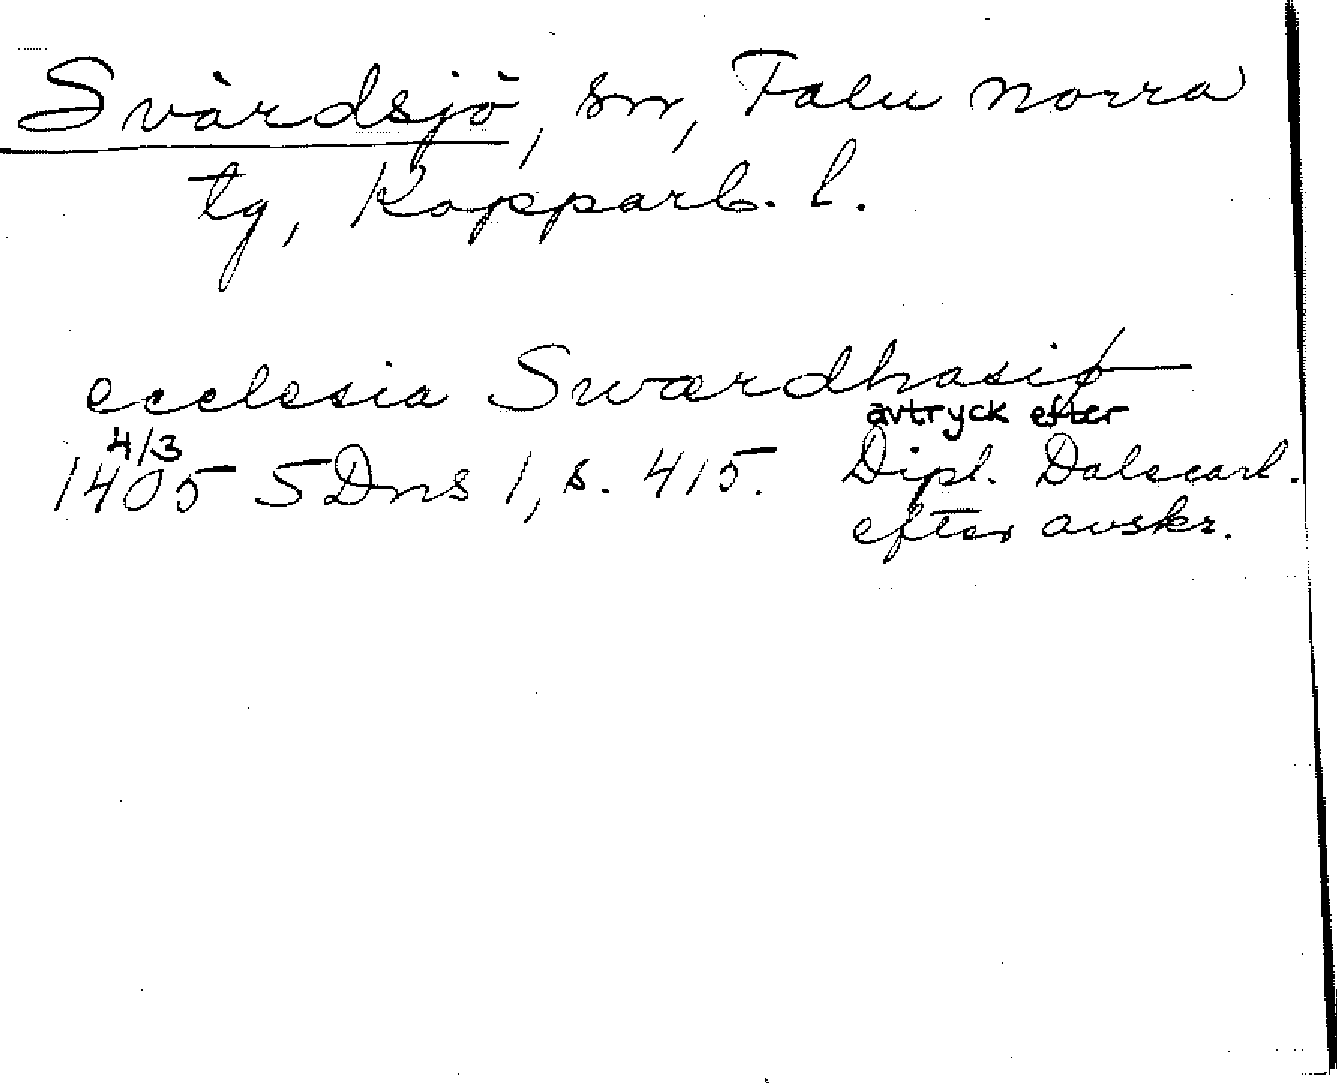 Svärdsjö, sn, Falu norra
tg, Kopparb. l.
ecclesia Swærdhasiø
4/3
1405 SDns 1, s. 415. avtryck efter
Dipl. Dalecarl.
efter avskr.